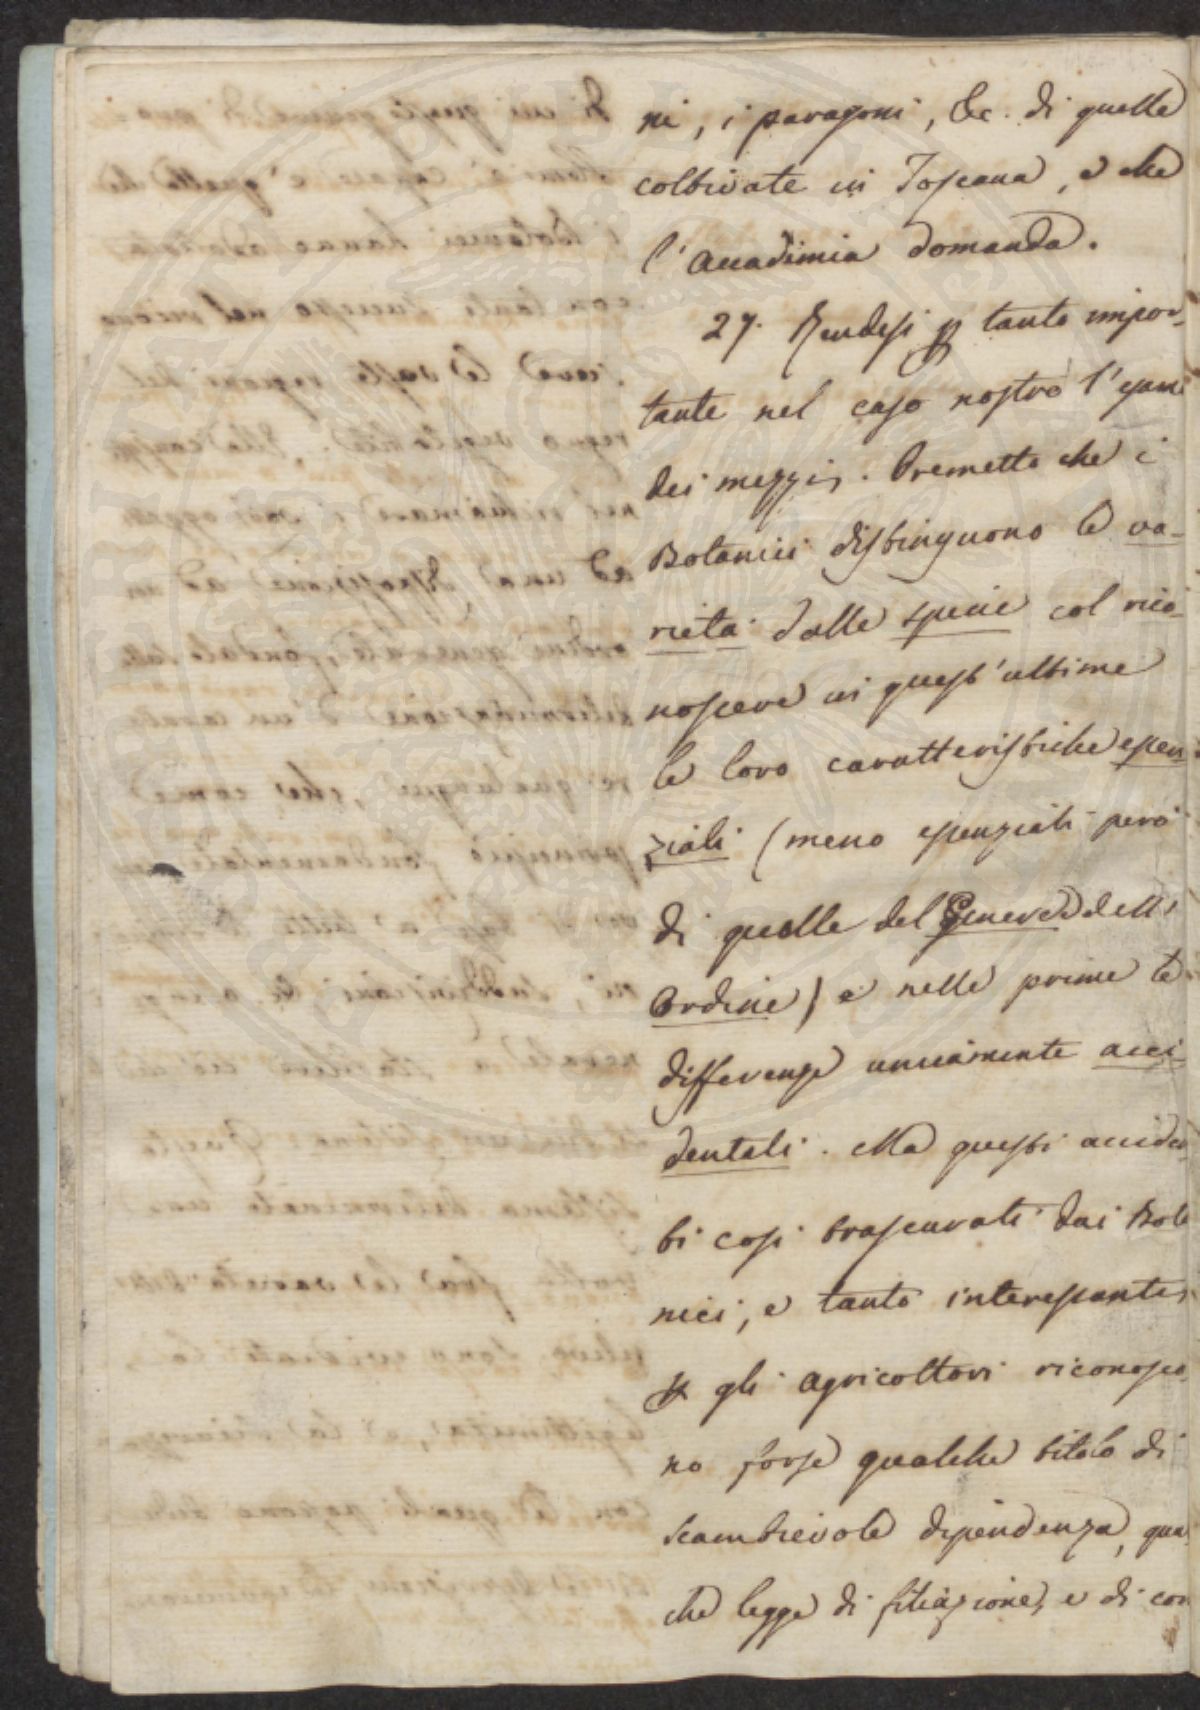 ni, i paragoni, &c. di quelle
coltivate in Toscana, e che
l'Accadimia domanda.
27. Rendesi p tanto impor-
tante nel caso nostro l'esame
dei mezzi. Premetto che i
Botanici distinguono le va-
rietà dalle specie col rico-
noscere in quest'ultime
le loro caratteristiche essen
ziali (meno essenziali però
di quelle del Genere dell'
Ordine) e nelle prime le
differenze unicamente acci-
dentali. Ma questi acciden
ti così trascurati dai Bota
nici, e tanto interessanti
p gli agricoltori riconosco
no forse qualche titolo di
scambievole dipendenza, qual
che legge di filiazione, e di con